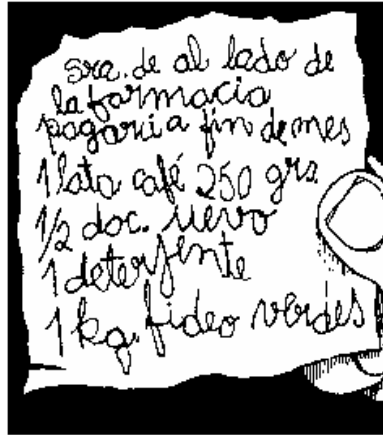 sra. de al lado de
la farmacia
pagaría fin de mes
1 lata café 250 grs
1/2 doc. uevo
1 deterjente
1 kg. fideo verdes